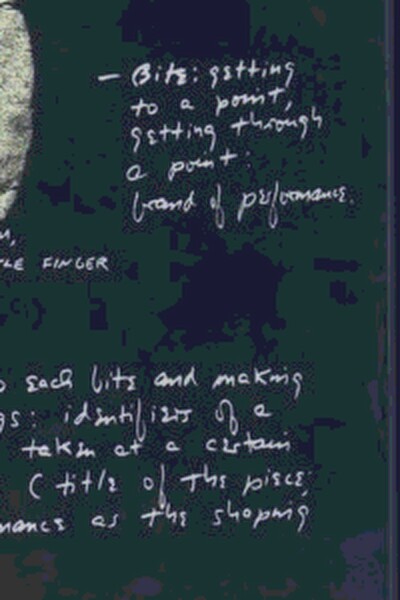 – Bite: getting
to a point,
getting through
a point:
brand of performance.
LE FINGER
each bite and making
gs: identifiers of a
taken at a certain
( title of the piece;
mance as the shaping